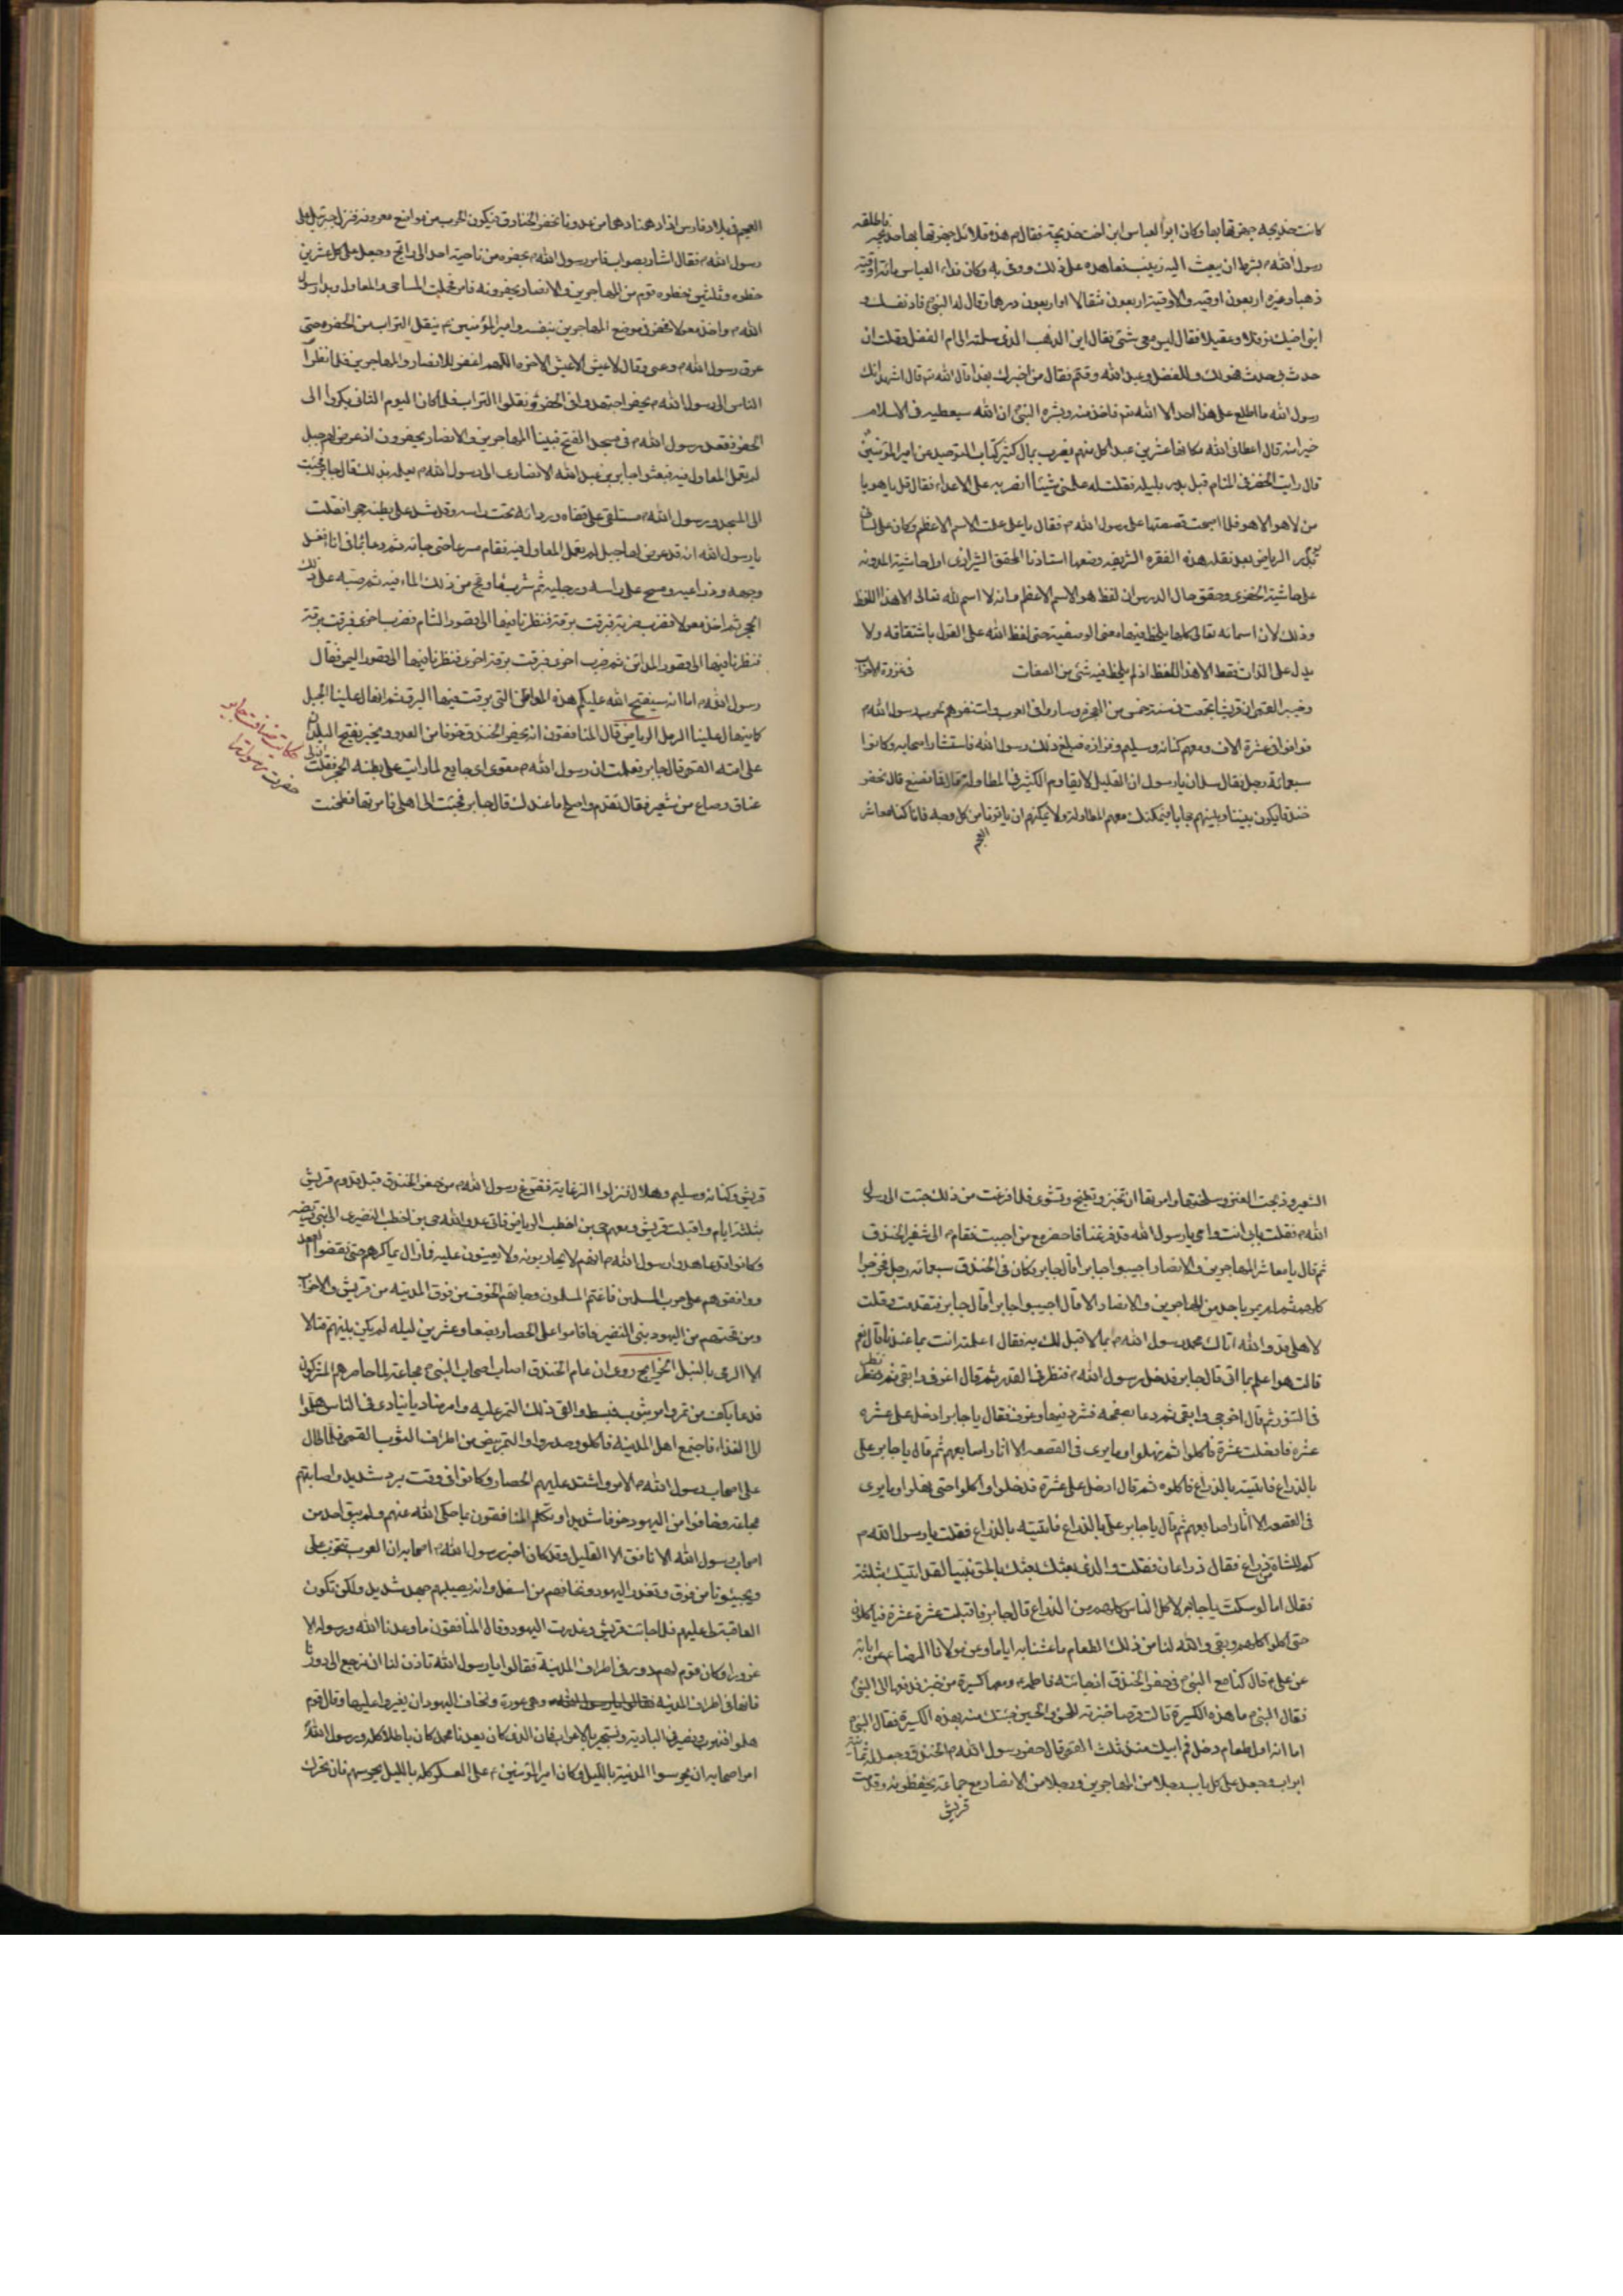 كانت خديجة جهزتها بها وكان ابو العباس ابن اخت خديجة فقال م هذه قلائد جهزتها بها خديجة فاطلقه
رسول الله م بشرط ان يبعث اليه زينب فعاهده على ذلك ووفى به وكان فداء العباس مائة اوقية
ذهبا وغيره اربعون اوقية والاوقية اربعون مثقالا او اربعون درهما وقال له النبي م فاد نفسك و
ابنى اخيك نوفلا وعقيلا فقال ليس معى شئ فقال اين الذهب الذى سلمته الى ام الفضل وقلت ان
حدث بى حدث فهو لك وللفضل وعبد الله وقثم فقال من اخبرك بهذا قال الله تم قال اشهد انك
رسول الله ما اطلع على هذا احد الا الله تم فاخذ منه وبشره النبي ان الله سيعطيه فى الاسلام
خيرا منه قال اعطانى الله مكانها عشرين عبدا كل منهم يضرب بمال كثير كتاب التوحيد عن امير المؤمنين
قال رايت الخضر فى المنام قبل بدر بليلة فقلت له علمنى شيئا انصر به على الاعداء فقال قل يا هو يا
من لا هو الا هو فلما اصبحت قصصتها على رسول الله م فقال يا على علمت الاسم الاعظم وكان على لسانى
الرياض بعد نقله هذه الفقرة الشريفة وضعها استادنا المحقق الشيرازى اول حاشية المدونة
على حاشية الخفرى وحقق حال الدرس ان لفظ هو الاسم الاعظم فانه لا اسم لله تعالى الا هذا اللفظ
وذلك لان اسمائه تعالى كلها يلحظ فيها معنى الوصفية حتى لفظ الله على القول باشتقاقه ولا
يدل على الذات فقط الا هذا اللفظ اذ لم يلحظ فيه شئ من الصفات فى غزوة الاحزاب
وخيبر القمى ان قريشا تجمعت فى سنة خمس من الهجرة وساروا فى العرب واستنفروهم لحرب رسول الله م
فوافوا فى عشرة الاف ومعهم كنانة وسليم وفزارة فبلغ ذلك رسول الله فاستشار اصحابه وكانوا
سبعمائة رجل فقال سلمان يا رسول ان القليل لا يقاوم الكثير فى المطاولة قال فما نصنع قال نحفر
خندقا يكون بيننا وبينهم حجابا فيمكنك معهم المطاولة ولا يمكنهم ان ياتونا من كل وجه فانا كنا معاشر
العجم
العجم فى بلاد فارس اذا دهمنا دهم من عدونا نحفر الخنادق فيكون الحرب من مواضع معروفة فنزل جبرئيل على
رسول الله م فقال اشار بصواب فامر رسول الله م بحفره من ناحية احد الى راتج وجعل على كل عشرين
خطوة وثلثين خطوة قوم من المهاجرين والانصار يحفرونه فامر فحملت المساحى والمعاول وبدا رسول
الله م واخذ معولا فحفر فى موضع المهاجرين بنفسه وامير المؤمنين م ينقل التراب من الحفرة حتى
عرق رسول الله م وعيى وقال لا عيش الا عيش الاخرة اللهم اغفر للانصار والمهاجرين فلما نظر
الناس الى رسول الله م يحفر اجتهدوا فى الحفر ونقلوا التراب فلما كان اليوم الثانى بكروا الى
الحفر فقعد رسول الله م فى مسجد الفتح فبينا المهاجرين والانصار يحفرون اذ عرض لهم جبل
لم يعمل المعاول فيه فبعثوا جابر بن عبد الله الانصارى الى رسول الله م يعلمه بذلك قال جابر فجئت
الى المسجد ورسول الله م مستلقى على قفاه وردائه تحت راسه وقد شد على بطنه حجرا فقلت
يا رسول الله انه قد عرض لنا جبل لم يعمل المعاول فيه فقام مسرعا حتى جائه ثم دعا بماء فى اناء فغسل
وجهه وذراعيه ومسح على راسه ورجليه ثم شرب ومج من ذلك الماء فيه ثم صبه على ذلك
الحجر ثم اخذ معولا فضرب ضربة فبرقت برقة فنظرنا فيها الى قصور الشام فضرب اخرى فبرقت برقة
فنظرنا فيها الى قصور المدائن ثم ضرب اخرى فبرقت برقة اخرى فنظرنا فيها الى قصور اليمن فقال
رسول الله م اما انه سيفتح الله عليكم هذه المواطن التى برقت فيها البرق ثم انهال علينا الجبل
كما ينهال علينا الرمل الرياض قال المنافقون انه يحفر الخندق خوفا من العدو ويخبر بفتح البلدان
على امته القمى قال جابر فعلمت ان رسول الله م مقوى اى جايع لما رايت على بطنه الحجر فقلت
عناق وصاع من شعير فقال تقدم واصلح ما عندك قال جابر فجئت الى اهلى فامرتها فطحنت
حكايت ضيافت جابر
حضرت رسول را
الشعير وذبحت العنز وسلختها وامرتها ان تخبز وتطبخ وتشوى فلما فرغت من ذلك جئت الى رسول
الله م فقلت بابى انت وامى يا رسول الله قد فرغنا فاحضر مع من احببت فقام م الى شفير الخندق
ثم قال يا معاشر المهاجرين والانصار اجيبوا جابرا قال جابر وكان فى الخندق سبعمائة رجل فخرجوا
كلهم ثم لم يمر باحد من المهاجرين والانصار الا قال اجيبوا جابرا قال جابر فتقدمت وقلت
لاهلى قد والله اتاك محمد رسول الله م بما لا قبل لك به فقال اعلمته انت بما عندنا قال نعم
قالت هو اعلم بما اتى قال جابر فدخل رسول الله م فنظر فى القدر ثم قال اغرفى وابقى ثم نظر
فى التنور ثم قال اخرجى وابقى ثم دعا بصفحة فثرد فيها وغرف فقال يا جابر ادخل على عشرة
عشرة فادخلت عشرة فاكلوا حتى نهلوا وما يرى فى القصعة الا اثار اصابعهم ثم قال يا جابر على
بالذراع فاتيته بالذراع فاكلوه ثم قال ادخل على عشرة فدخلوا واكلوا حتى نهلوا وما يرى
فى القصعة الا اثار اصابعهم ثم قال يا جابر على بالذراع فاتيته بالذراع فقلت يا رسول الله م
كم للشاة من ذراع فقال ذراعان فقلت والذى بعثك بالحق نبيا لقد اتيتك بثلثة
فقال اما لو سكت يا جابر لاكل الناس كلهم من الذراع قال جابر فاقبلت عشرة عشرة فياكلون
حتى اكلوا كلهم وبقى والله لنا من ذلك الطعام ما عشنا به اياما وعن مولانا الرضا ع عن ابائه
عن على م قال كنا مع النبي م فى حفر الخندق اذ جائته فاطمة م ومعها كسيرة من خبز فدفعتها الى النبى
فقال النبي م ما هذه الكسيرة قالت قرصا خبزته للحسن والحسين جئتك منه بهذه الكسيرة فقال النبى م
اما انه اول طعام دخل فم ابيك منذ ثلث القمى قال حفر رسول الله م الخندق وجعل له ثمانية
ابواب وجعل على كل باب رجلا من المهاجرين ورجلا من الانصار مع جماعة يحفظونه وقدمت
قريش
قريش وكنانة وسليم وهلال فنزلوا الزغابة ففرغ رسول الله م من حفر الخندق قبل قدوم قريش
بثلثة ايام واقبلت قريش ومعهم حى بن اخطب الرياض فاتى عدو الله حى بن اخطب النضيرى الى بنى قريضه
وكانوا قد عاهدوا رسول الله م انهم لا يحاربونه ولا يعينون عليه فما زال يماكرهم حتى نقضوا العهد
ووافقوهم على حرب المسلمين فاغتم المسلمون وجائهم الخوف من فوق المدينة من قريش والاحزاب
ومن تحتهم من اليهود بنى النضير فاقاموا على الحصار بضعا وعشرين ليلة لم يكن بينهم قتالا
الا الرمى بالنبل الخرايج روى ان عام الخندق اصاب اصحاب النبى م مجاعة لما حاصرهم المشركون
فدعا بكف من تمر وامر بثوب فبسط والقى ذلك التمر عليه وامر مناديا ينادى فى الناس هلموا
الى الغذاء فاجتمع اهل المدينة فاكلوا وصدروا والتمر يبض من اطراف الثوب القمى فلما طال
على اصحاب رسول الله م الامر واشتد عليهم الحصار وكانوا فى وقت برد شديد واصابتهم
مجاعة وخافوا من اليهود خوفا شديدا وتكلم المنافقون بما حكى الله عنهم ولم يبق احد من
اصحاب رسول الله الا نافق الا القليل وقد كان اخبر رسول الله م اصحابه ان العرب تتحزب على
ويجيئونا من فوق وتغدر اليهود ونخافهم من اسفل وانه يصيبهم جهد شديد ولكن تكون
العاقبة لى عليهم فلما جائت قريش وغدرت اليهود وقال المنافقون ما وعدنا الله ورسوله الا
غرورا وكان قوم لهم دور فى اطراف المدينة فقالوا يا رسول الله تاذن لنا ان نرجع الى دورنا
فانها فى اطراف المدينة وهى عورة ونخاف اليهود ان يغيروا عليها وقال قوم
هلموا فنهرب ونصير فى البادية ونستجير بالاعراب فان الذى كان يعدنا محمد كان باطلا كله ورسول الله
امر اصحابه ان يحرسوا المدينة بالليل وكان امير المؤمنين م على العسكر كله بالليل يحرسهم فان تحرك